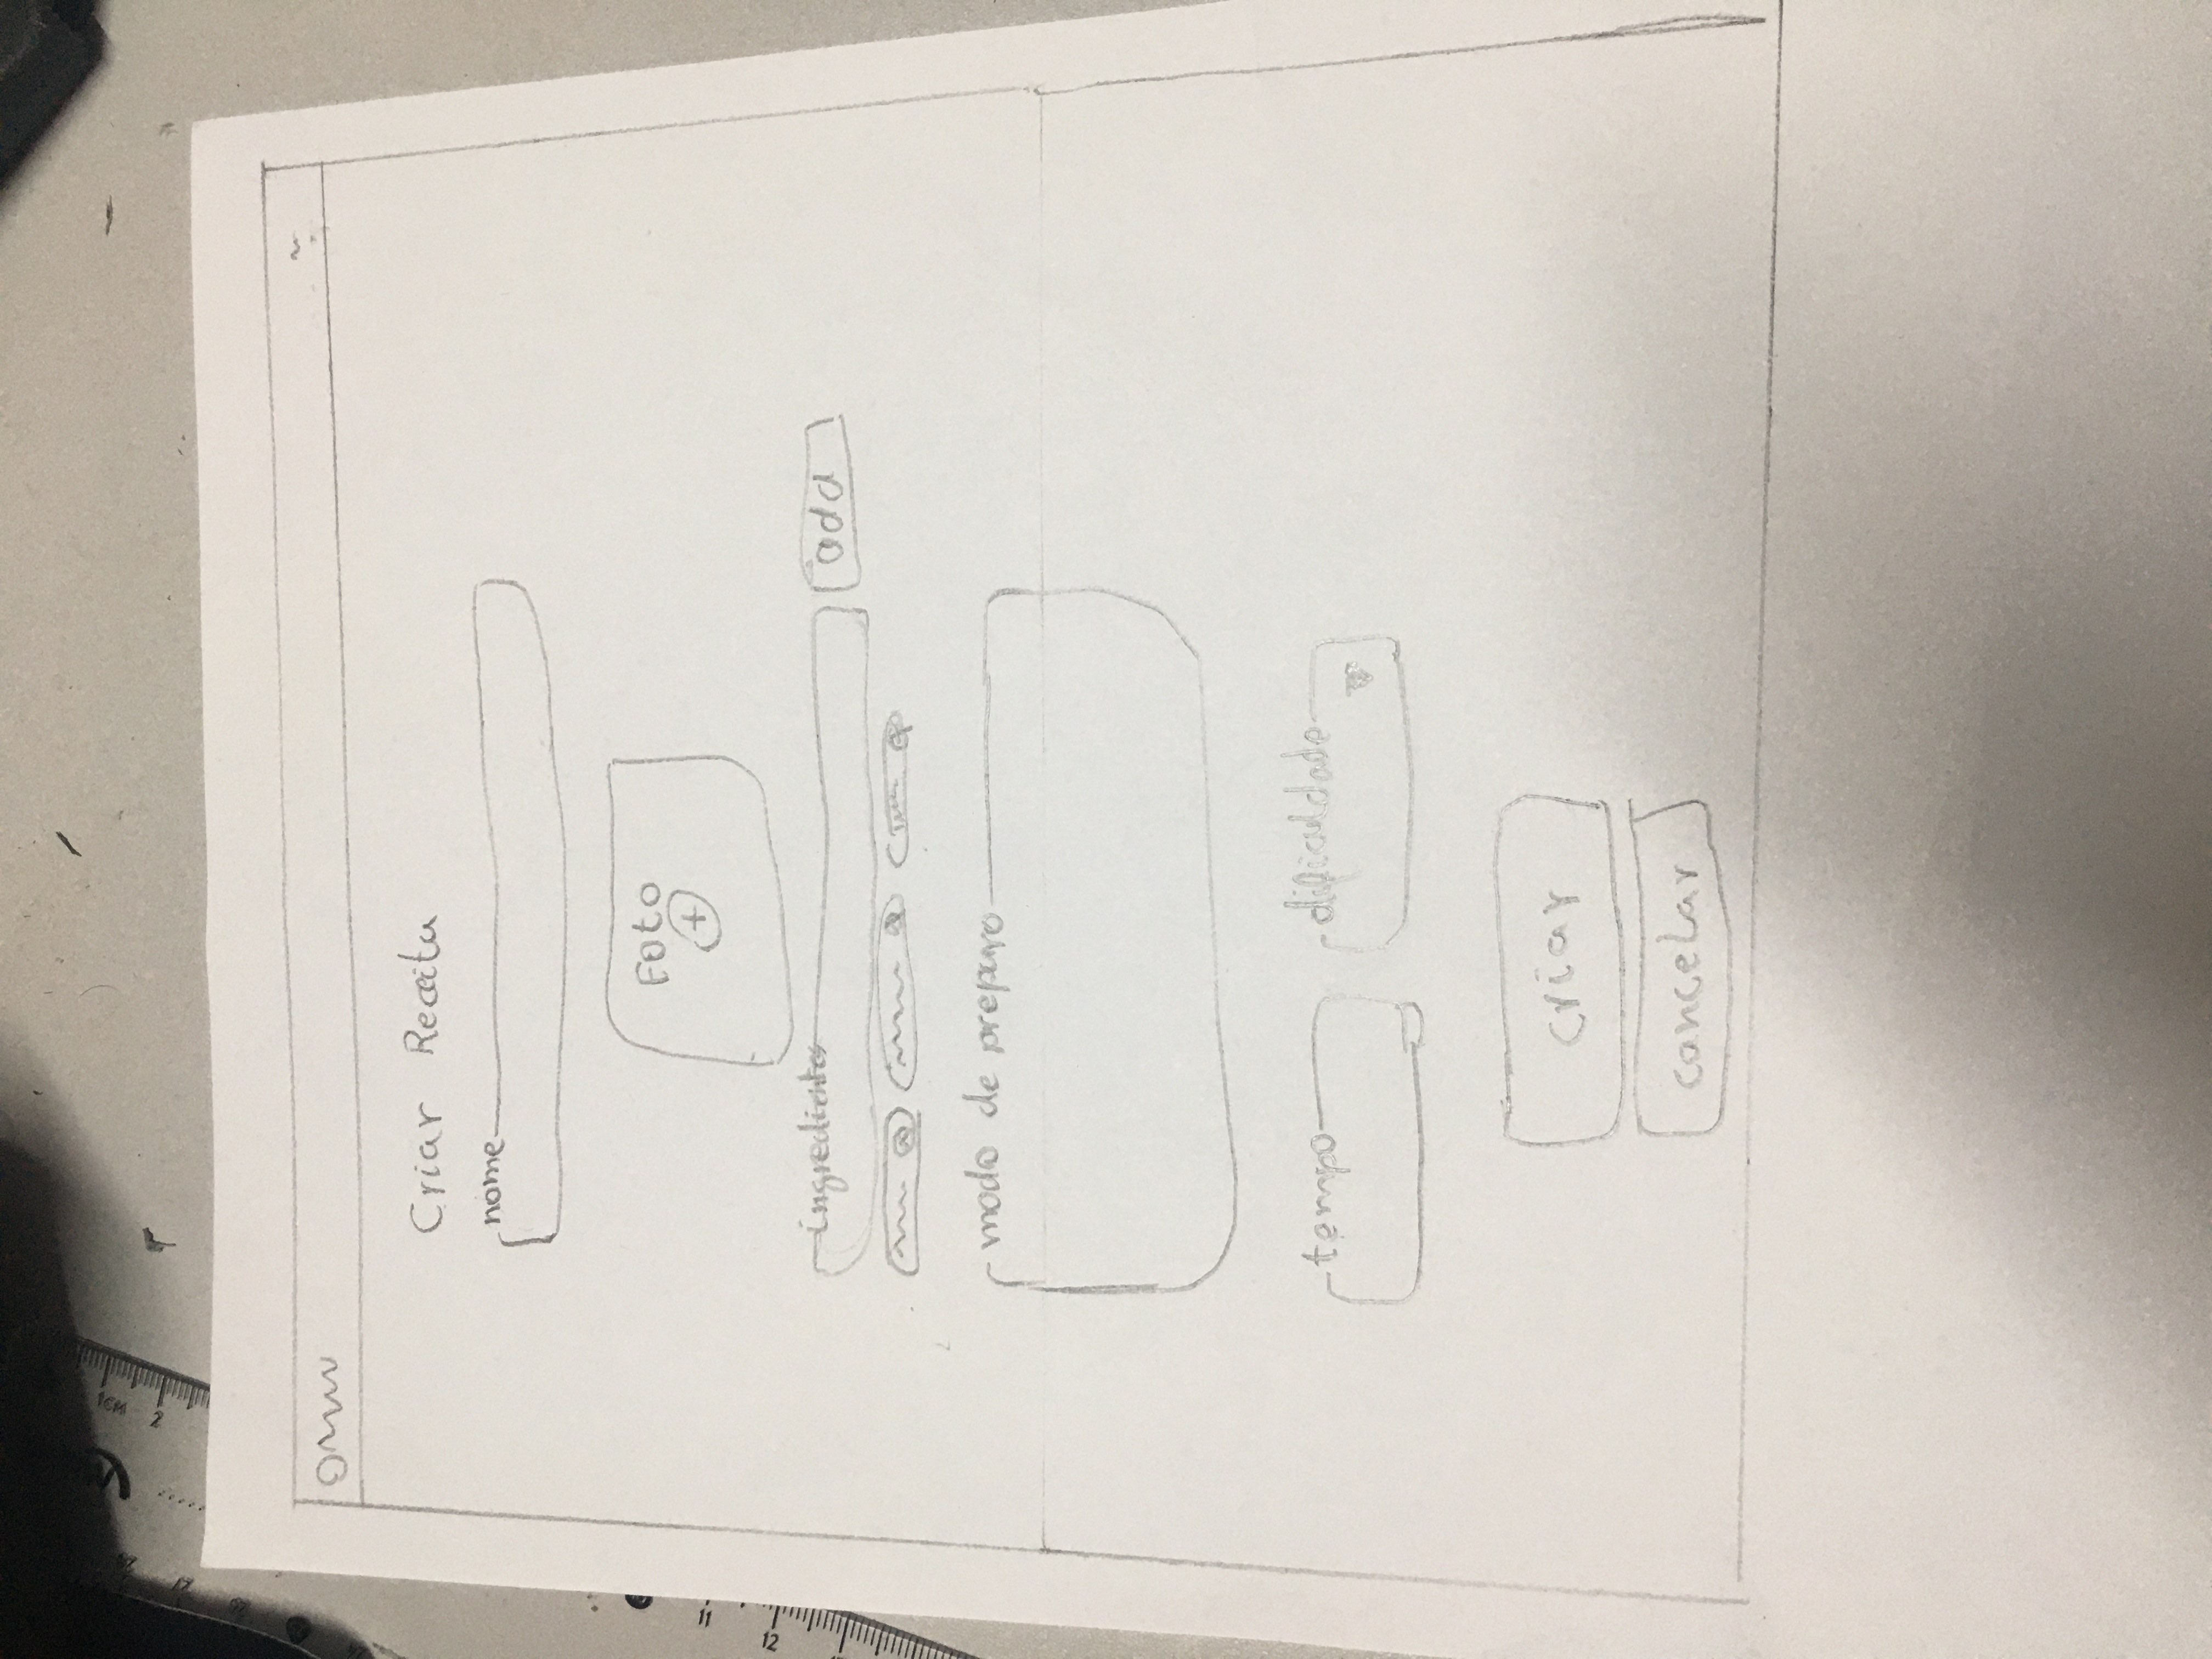 Criar Receita
nome
Foto
+
ingredientes
add
modo de preparo
tempo
dificuldade
criar
cancelar
1CM
2
11
12